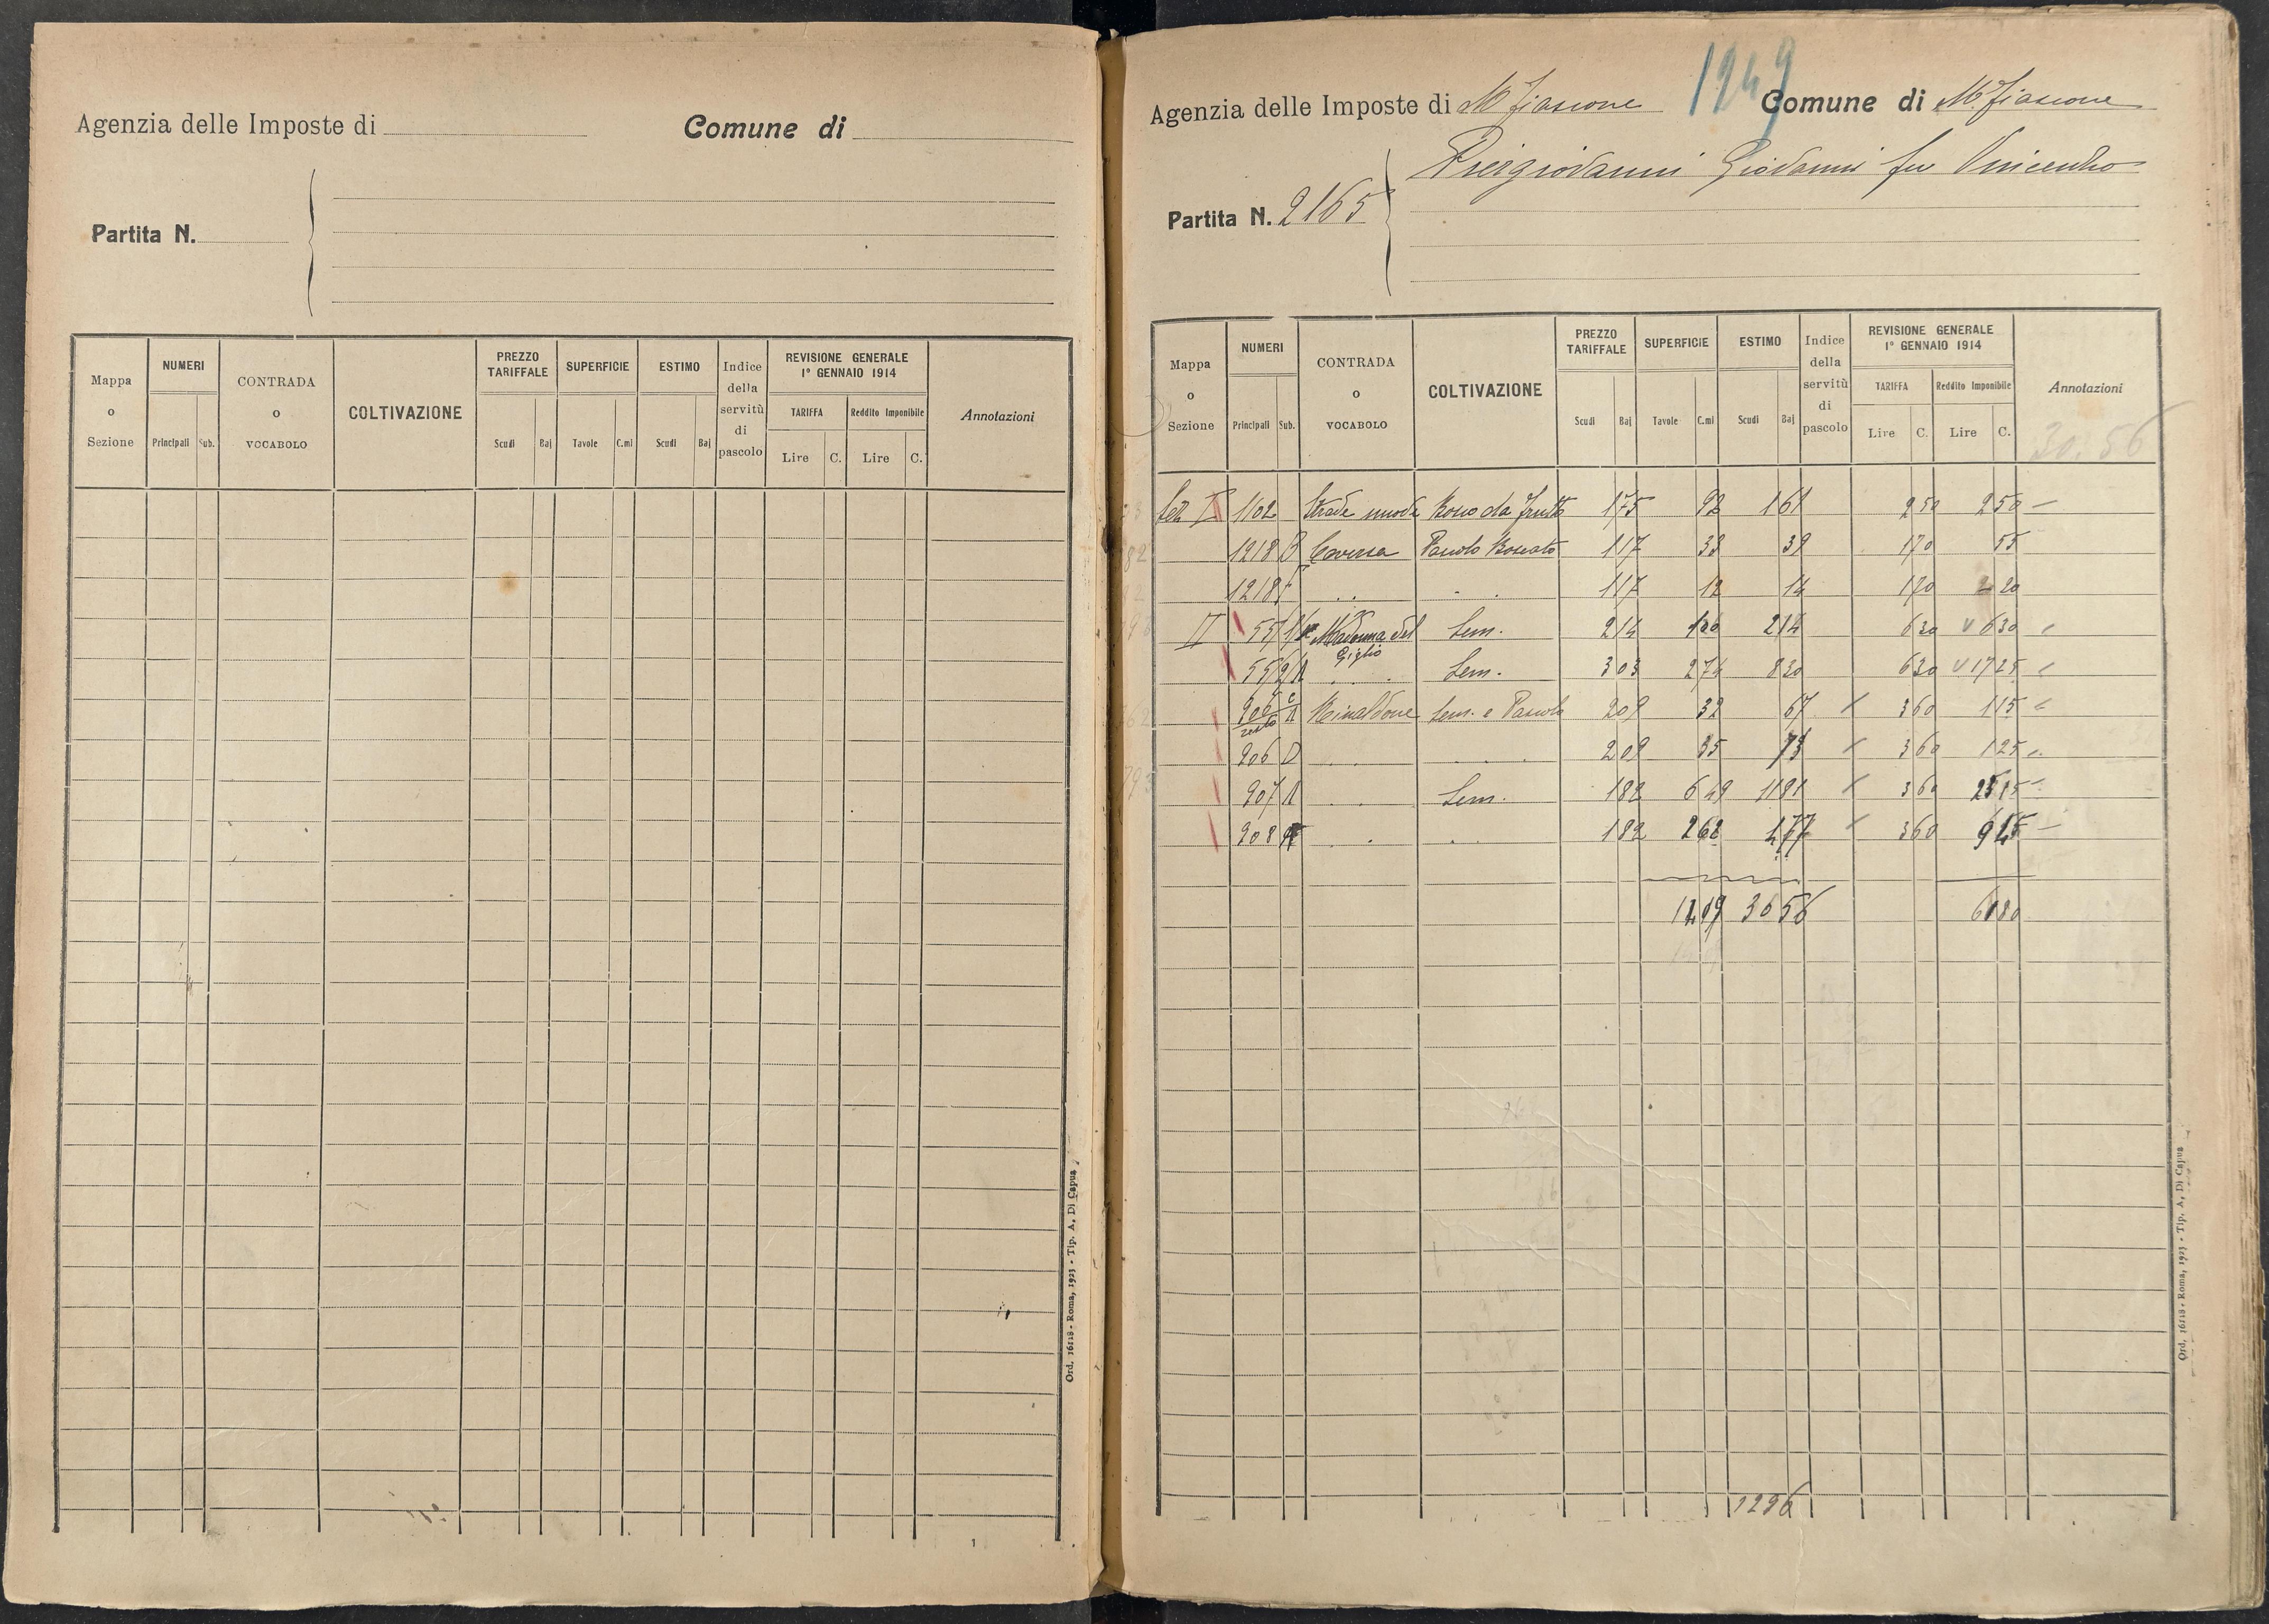 Agenzia delle Imposte di
Comune di
Partita N.
Mappa o Sezione
NUMERI
Principali Sub.
CONTRADA o VOCABOLO
COLTIVAZIONE
PREZZO TARIFFALE
Scudi Baj
SUPERFICIE
Tavole C.mi
ESTIMO
Scudi Baj
Indice della servitù di pascolo
REVISIONE GENERALE
1° GENNAIO 1914
TARIFFA Reddito Imponibile
Lire C. Lire C.
Annotazioni
Ord. 16118 - Roma, 1923 - Tip. A. Di Capua
1
1249
Agenzia delle Imposte di M Fiascone Comune di M. Fiascone
Piergiovanni Giovanni fu Vincenzo
Partita N. 2165
Mappa o Sezione
NUMERI
Principali Sub.
CONTRADA o VOCABOLO
COLTIVAZIONE
PREZZO TARIFFALE
Scudi Baj
SUPERFICIE
Tavole C.mi
ESTIMO
Scudi Baj
Indice della servitù di pascolo
REVISIONE GENERALE
1° GENNAIO 1914
TARIFFA Reddito Imponibile
Lire C. Lire C.
Annotazioni
30.56
Sez I 1102 Strada nuova Bosco da frutto 175 92 161 250 250 —
1218 B Caversa Pascolo Boscato 117 33 39 170 55
1218 .. . . 117 12 14 170 20
II 55/1 Madonna del Giglio Sem. 214 100 214 630 V 630
55/2 A . . . Sem. 303 274 830 630 V 1725
906 A resto Rinaldone Sem. e Pascolo 209 32 67 360 115
906 D . . . . . 209 35 73 360 125
907 A . . Sem. 182 649 1181 360 2515
908 . . . . 182 262 477 360 945 —
3056 6180
1296
Ord. 16118 - Roma, 1923 - Tip. A. Di Capua